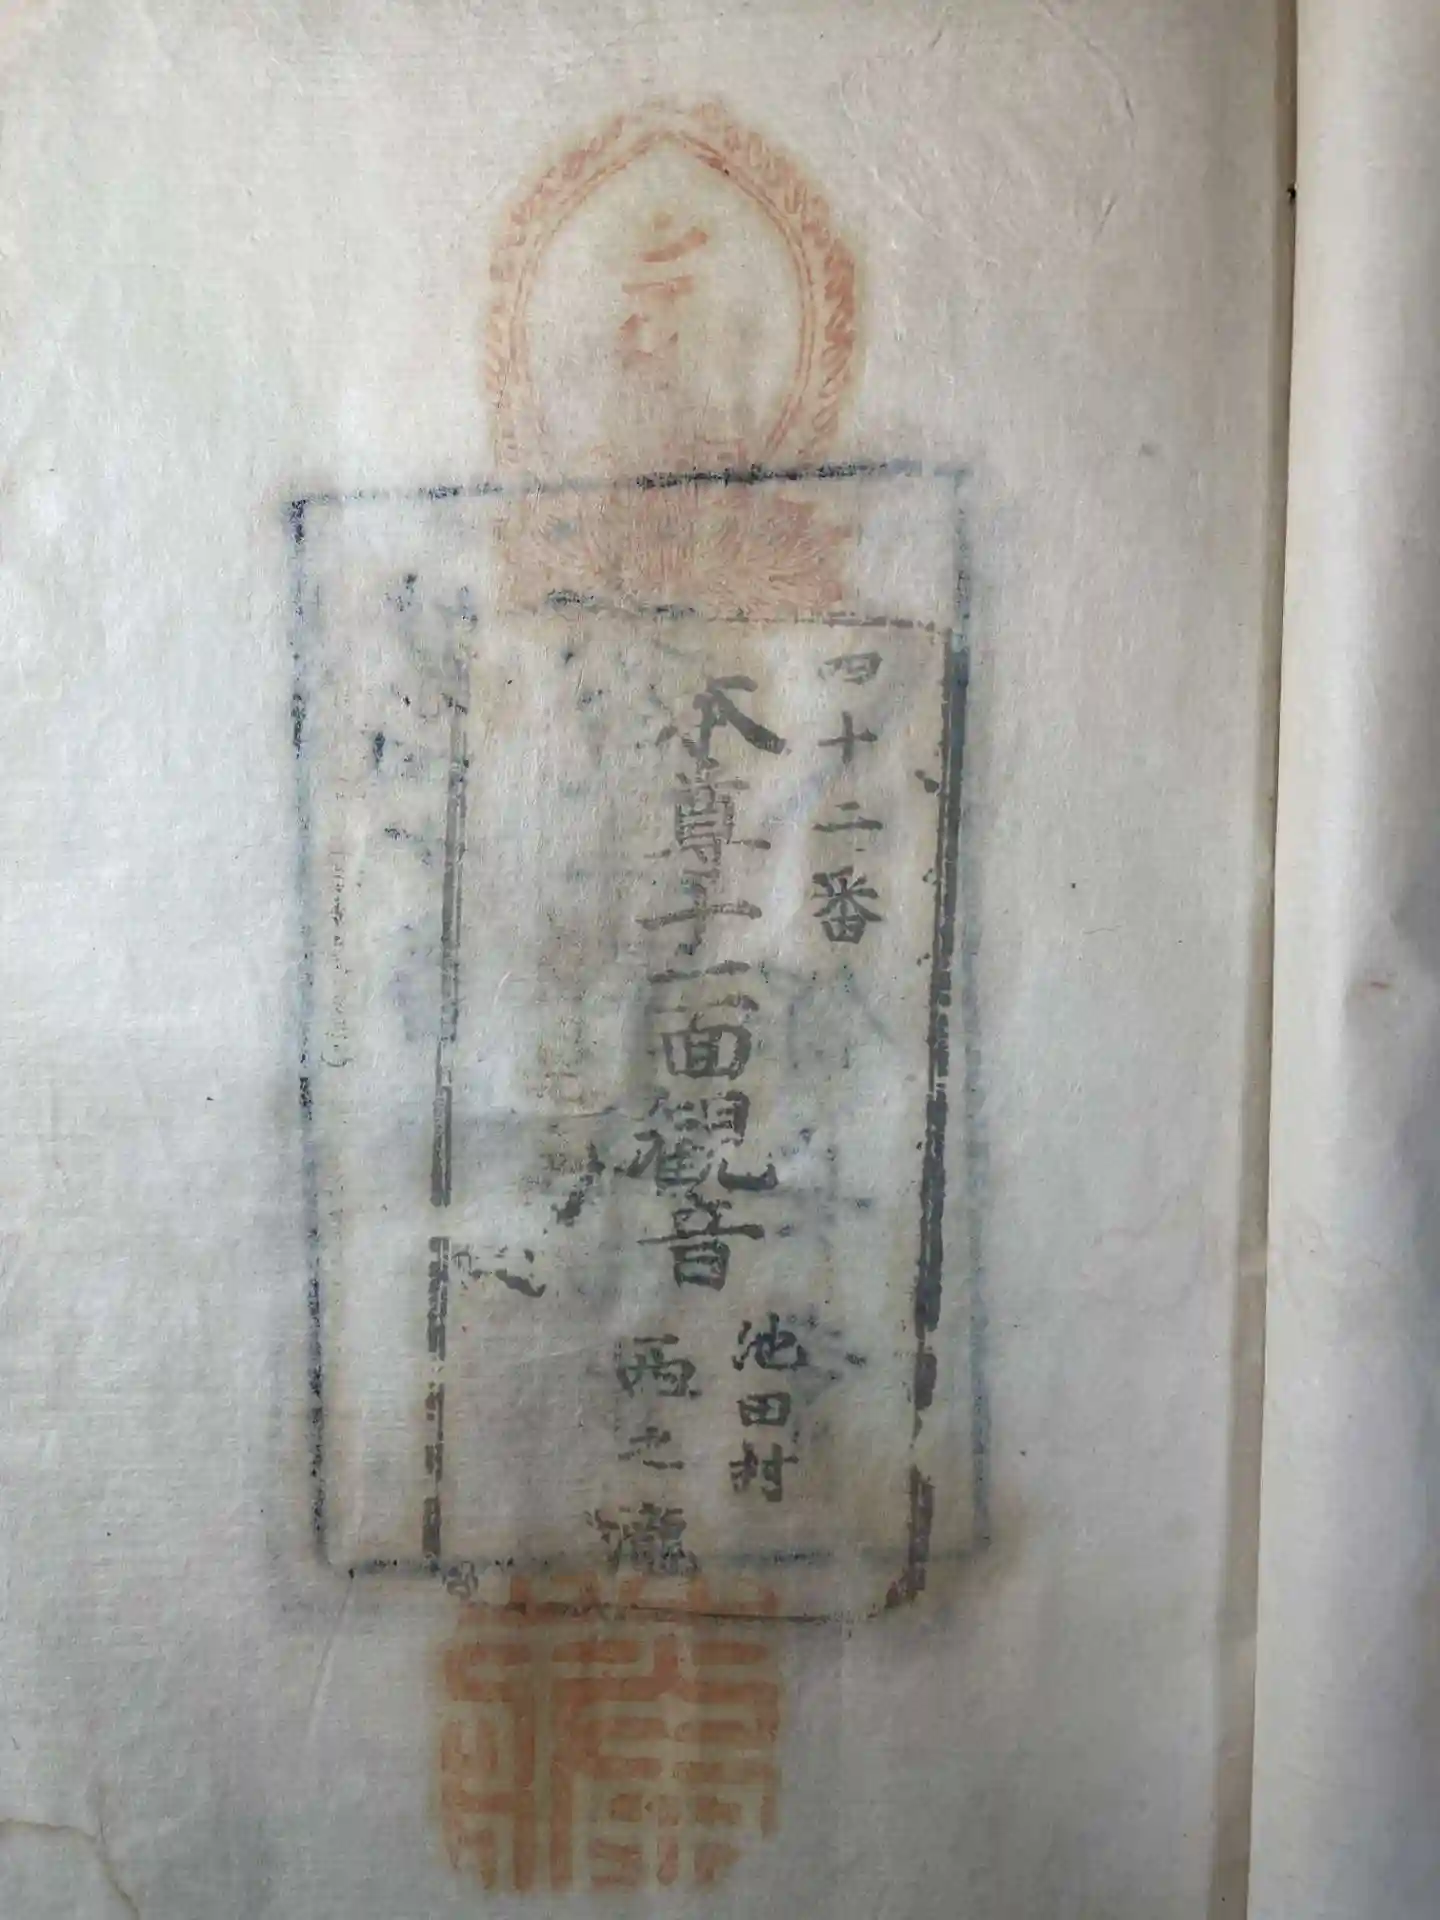 四十二番
本尊十一面觀音
池田村
西之瀧